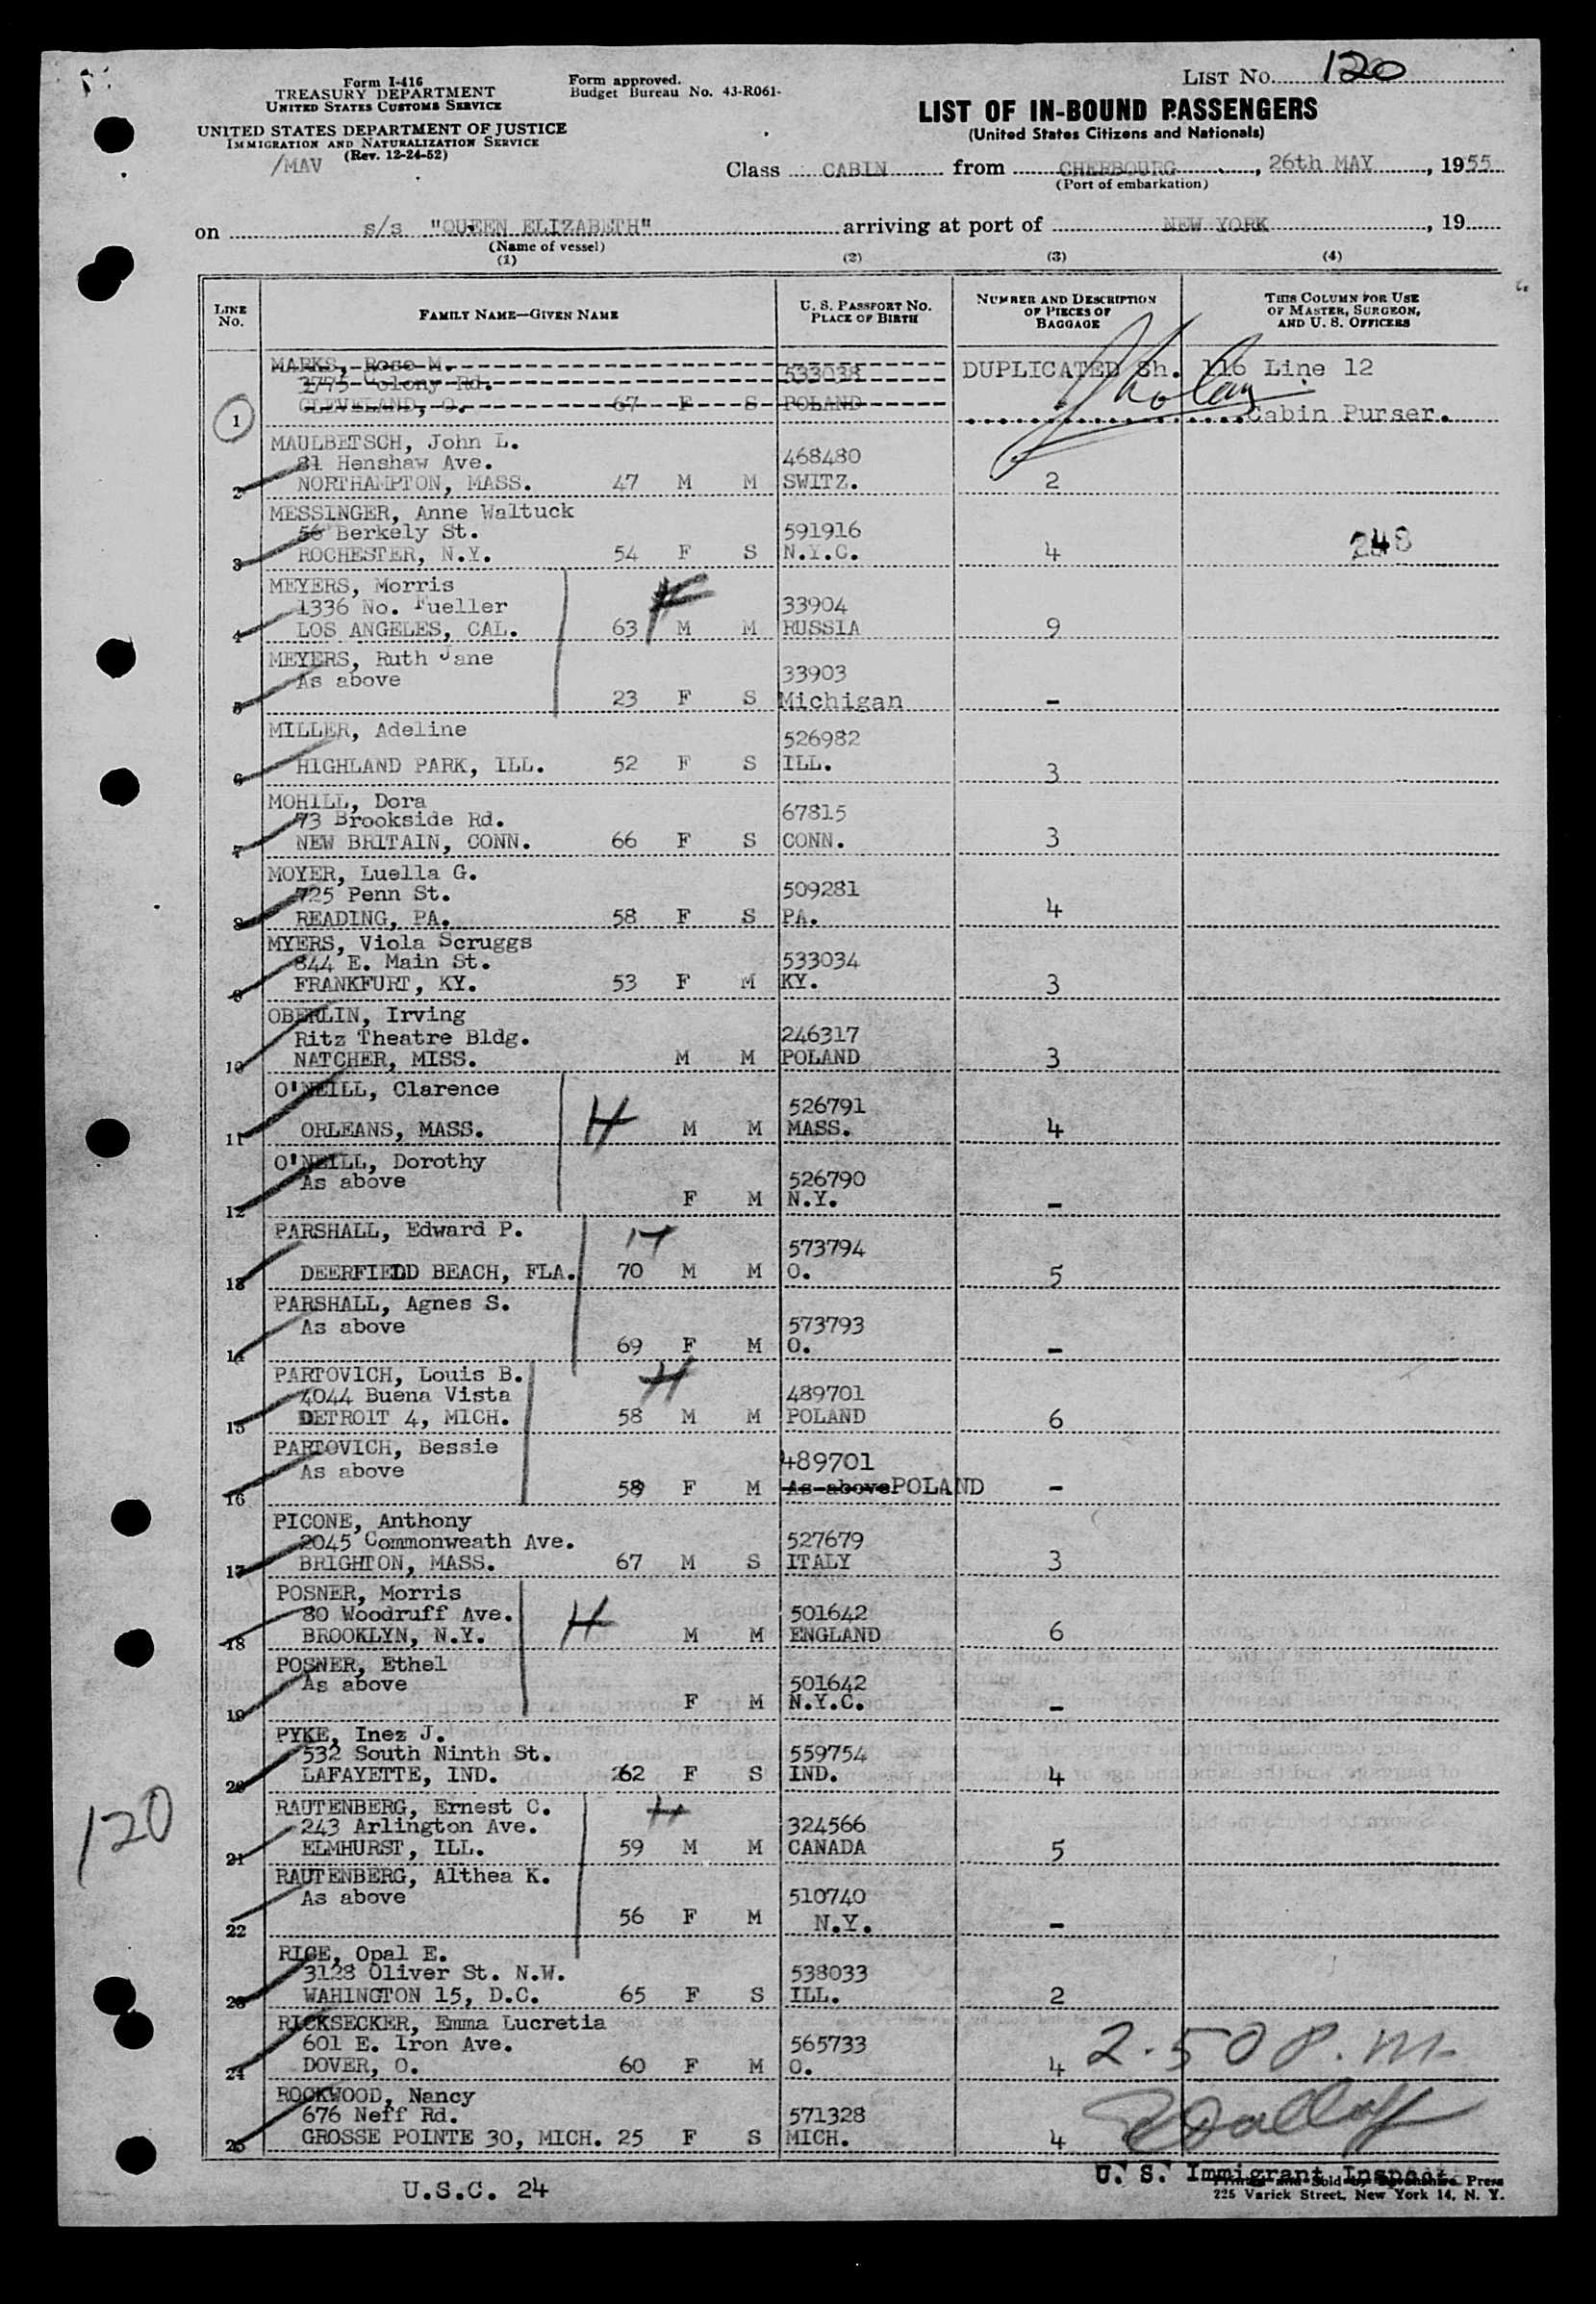 Form I-416
TREASURY DEPARTMENT
UNITED STATES CUSTOMS SERVICE
UNITED STATES DEPARTMENT OF JUSTICE
IMMIGRATION AND NATURALIZATION SERVICE
(Rev. 12-24-52)
/MAV
Form approved.
Budget Bureau No. 43-R061-
LIST No. 120
LIST OF IN-BOUND PASSENGERS
(United States Citizens and Nationals)
Class CABIN from CHERBOURG, 26th MAY, 1955
(Port of embarkation)
on s/s "QUEEN ELIZABETH" arriving at port of NEW YORK, 19
(Name of vessel)
(1) (2) (3) (4)
LINE No. FAMILY NAME—GIVEN NAME U. S. PASSPORT NO. PLACE OF BIRTH NUMBER AND DESCRIPTION OF PIECES OF BAGGAGE THIS COLUMN FOR USE OF MASTER, SURGEON, AND U. S. OFFICERS
MARKS, Rose M.
Colony Rd. 533038 DUPLICATED Sh. 116 Line 12
1 CLEVELAND, O. 67 F S POLAND Cabin Purser.
MAULBETSCH, John L.
81 Henshaw Ave. 468480
2 NORTHAMPTON, MASS. 47 M M SWITZ. 2
MESSINGER, Anne Waltuck
56 Berkely St. 591916
3 ROCHESTER, N.Y. 54 F S N.Y.C. 4 248
MEYERS, Morris
1336 No. Fueller 33904
4 LOS ANGELES, CAL. 63 M M RUSSIA 9
MEYERS, Ruth Jane
As above 33903
5 23 F S Michigan -
MILLER, Adeline
526982
6 HIGHLAND PARK, ILL. 52 F S ILL. 3
MOHILL, Dora
73 Brookside Rd. 67815
7 NEW BRITAIN, CONN. 66 F S CONN. 3
MOYER, Luella G.
725 Penn St. 509281
8 READING, PA. 58 F S PA. 4
MYERS, Viola Scruggs
844 E. Main St. 533034
9 FRANKFURT, KY. 53 F M KY. 3
OBERLIN, Irving
Ritz Theatre Bldg. 246317
10 NATCHER, MISS. M M POLAND 3
O'NEILL, Clarence
H 526791
11 ORLEANS, MASS. M M MASS. 4
O'NEILL, Dorothy
As above 526790
12 F M N.Y. -
PARSHALL, Edward P.
H 573794
13 DEERFIELD BEACH, FLA. 70 M M O. 5
PARSHALL, Agnes S.
As above 573793
14 69 F M O. -
PARTOVICH, Louis B. H
4044 Buena Vista 489701
15 DETROIT 4, MICH. 58 M M POLAND 6
PARTOVICH, Bessie
As above 489701
16 58 F M As above POLAND -
PICONE, Anthony
2045 Commonweath Ave. 527679
17 BRIGHTON, MASS. 67 M S ITALY 3
POSNER, Morris
80 Woodruff Ave. H 501642
18 BROOKLYN, N.Y. M M ENGLAND 6
POSNER, Ethel
As above 501642
19 F M N.Y.C. -
PYKE, Inez J.
532 South Ninth St. 559754
20 LAFAYETTE, IND. 62 F S IND. 4
RAUTENBERG, Ernest C. H
243 Arlington Ave. 324566
21 ELMHURST, ILL. 59 M M CANADA 5
RAUTENBERG, Althea K.
As above 510740
22 56 F M N.Y. -
RICE, Opal E.
3128 Oliver St. N.W. 538033
23 WAHINGTON 15, D.C. 65 F S ILL. 2
RICKSECKER, Emma Lucretia
601 E. Iron Ave. 565733
24 DOVER, O. 60 F M O. 4 2.50 P.M.
ROCKWOOD, Nancy
676 Neff Rd. 571328
25 GROSSE POINTE 30, MICH. 25 F S MICH. 4
120
U.S.C. 24
U. S. Immigrant Inspect
Printed and Sold by Press
225 Varick Street, New York 14, N. Y.